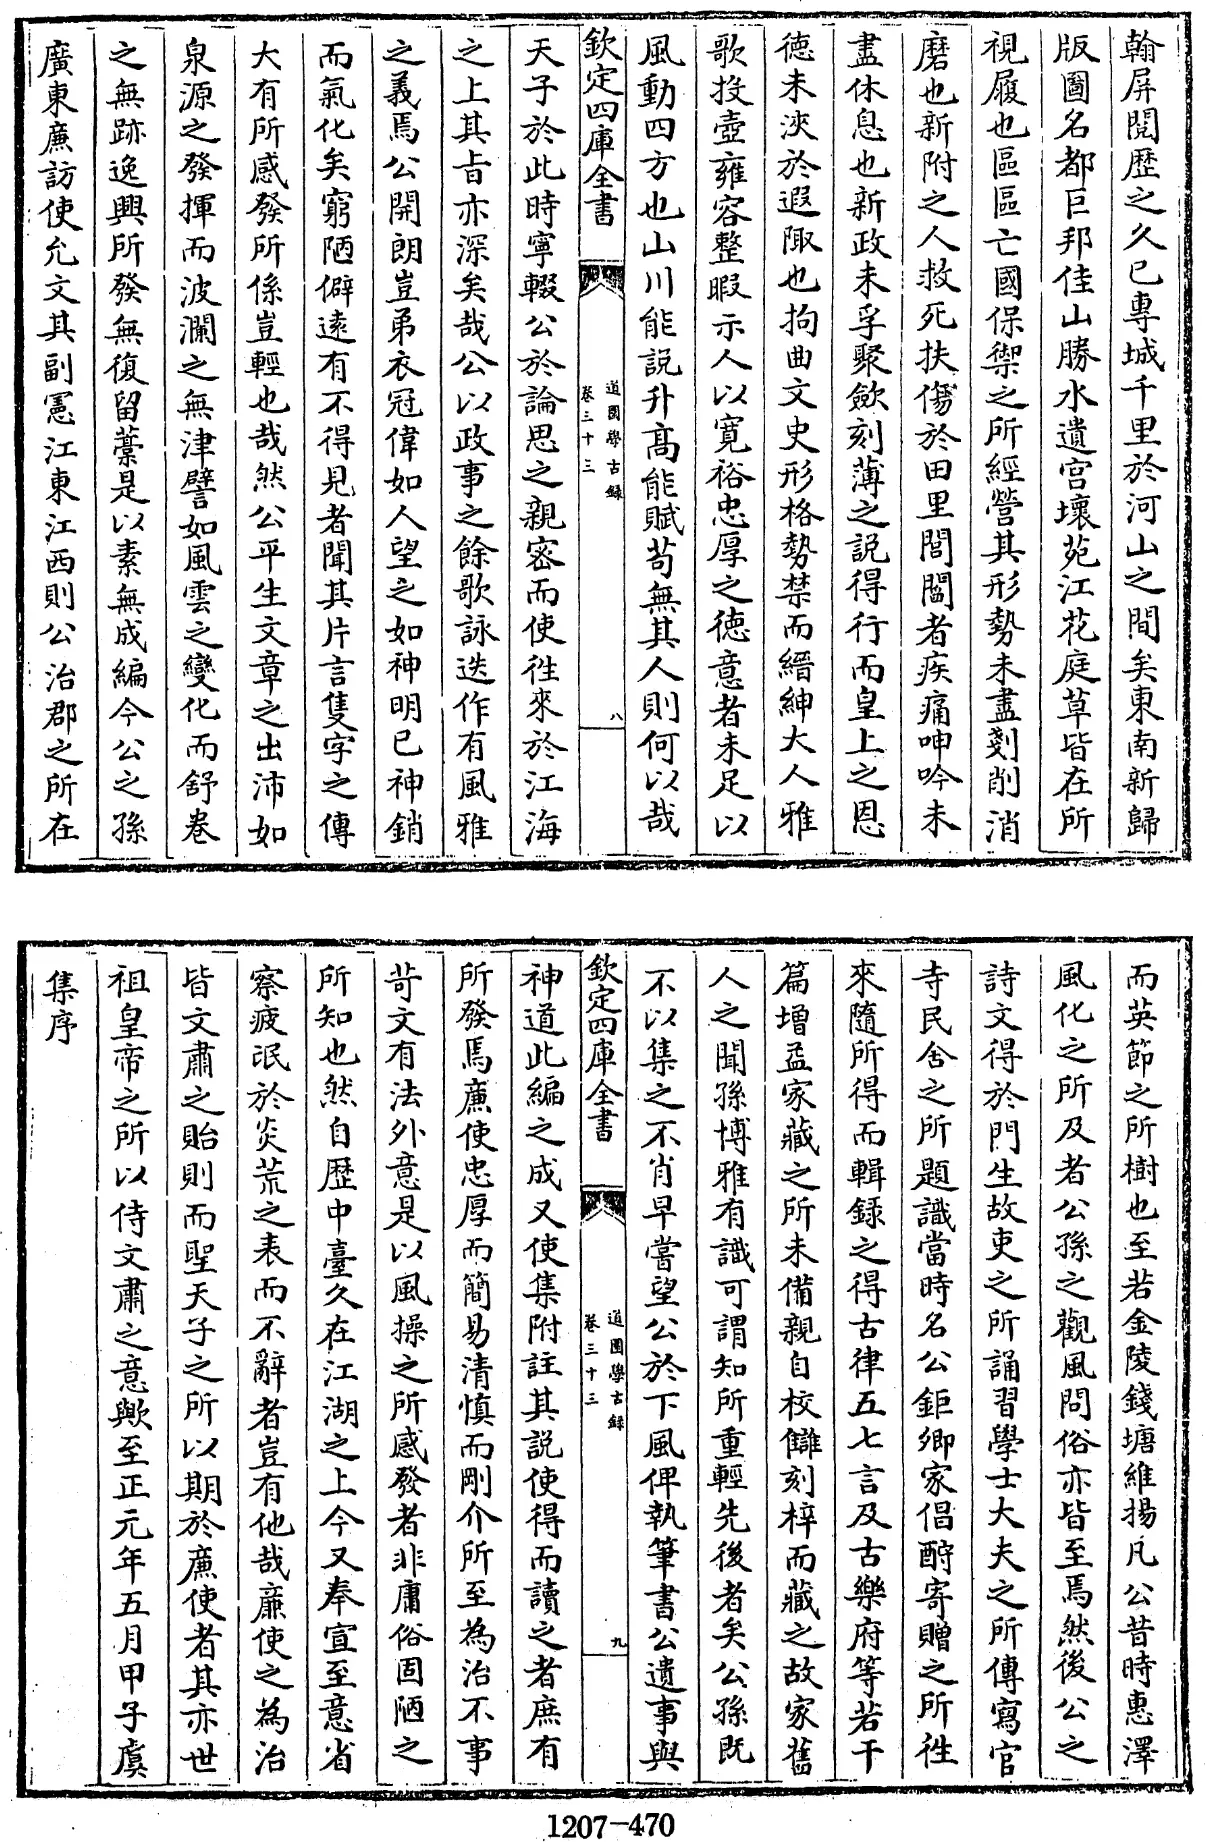 翰屏閱歴之久已專城千里於河山之間矣東南新歸
版圖名都巨邦佳山勝水遺宫壞苑江花庭草皆在所
視履也區區亡國保禦之所經營其形勢未盡剗削消
磨也新附之人救死扶傷於田里閭閻者疾痛呻吟未
盡休息也新政未孚聚斂刻薄之説得行而皇上之恩
徳未浹於遐陬也拘曲文史形格勢禁而縉紳大人雅
歌投壺雍容整暇示人以寛裕忠厚之徳意者未足以
風動四方也山川能説升髙能賦苟無其人則何以哉
欽定四庫全書
道園學古録
卷三十三
八
天子於此時寧輟公於論思之親宻而使徃來於江海
之上其㫖亦深矣哉公以政事之餘歌詠迭作有風雅
之義焉公開朗豈弟衣冠偉如人望之如神明已神銷
而氣化矣窮陋僻逺有不得見者聞其片言隻字之傳
大有所感發所係豈輕也哉然公平生文章之出沛如
泉源之發揮而波瀾之無津譬如風雲之變化而舒卷
之無跡逸興所發無復留藳是以素無成編今公之孫
廣東亷訪使允文其副憲江東江西則公治郡之所在
而英節之所樹也至若金陵錢塘維揚凡公昔時惠澤
風化之所及者公孫之觀風問俗亦皆至焉然後公之
詩文得於門生故吏之所誦習學士大夫之所傳寫官
寺民舍之所題識當時名公鉅卿家倡酧寄贈之所徃
來隨所得而輯録之得古律五七言及古樂府等若干
篇増益家藏之所未備親自校讎刻梓而藏之故家舊
人之聞孫博雅有識可謂知所重輕先後者矣公孫既
不以集之不肖早嘗望公於下風俾執筆書公遺事與
欽定四庫全書
道園學古録
卷三十三
九
神道此編之成又使集附註其説使得而讀之者庶有
所發焉亷使忠厚而簡易清慎而剛介所至為治不事
苛文有法外意是以風操之所感發者非庸俗固陋之
所知也然自歴中臺久在江湖之上今又奉宣至意省
察疲氓於炎荒之表而不辭者豈有他哉亷使之為治
皆文肅之貽則而聖天子之所以期於亷使者其亦世
祖皇帝之所以侍文肅之意歟至正元年五月甲子虞
集序
1207-470